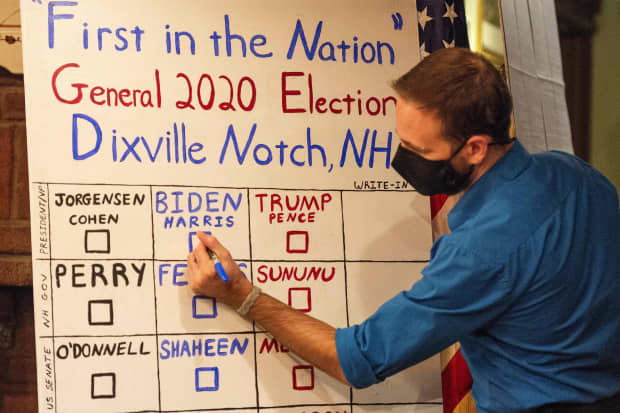 "First in the Nation"
General 2020 Election
Dixville Notch, NH
WRITE-IN
PRESIDENT/VP
JORGENSEN
COHEN
BIDEN
HARRIS
TRUMP
PENCE
NH GOV
PERRY
SUNUNU
US SENATE
O'DONNELL
SHAHEEN